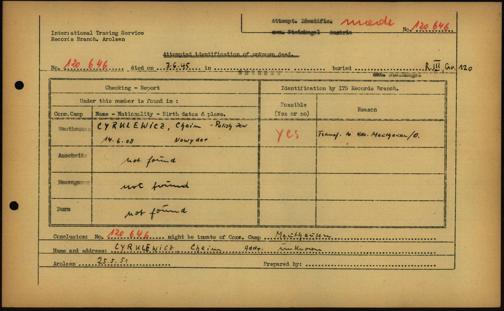 Attempt. Identific. made No. 120 646
International Tracing Service
Records Branch, Arolsen
Attempted identification of unknown dead.
No. 120 646 died on 7.6.45 in buried R III, Gr. 120
Checking - Report
Identification by ITS Records Branch.
Under this number is found in :
Conc.Camp
Name - Nationality - Birth dates & place.
Possible
(Yes or no)
Reason
CYRKLEWICZ, Chaim - Polish Jew
14.6.08
Yes
Transf. to
Auschwitz
not found
not found
not found
Conclusion: No. 120 646 might be inmate of Conc. Camp Mauthausen
Name and address: CYRKLEWICZ Chaim Addr. unknown
Arolsen 25.5.51 Prepared by: